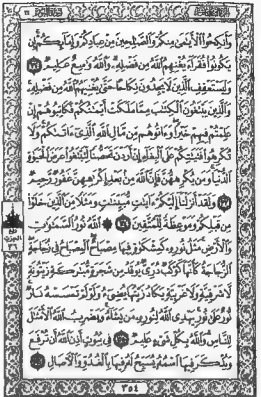 وَأَنكِحُوا۟ ٱلْأَيَـٰمَىٰ مِنكُمْ وَٱلصَّـٰلِحِينَ مِنْ عِبَادِكُمْ وَإِمَآئِكُمْ إِن
يَكُونُوا۟ فُقَرَآءَ يُغْنِهِمُ ٱللَّهُ مِن فَضْلِهِۦ وَٱللَّهُ وَٰسِعٌ عَلِيمٌ ٣٢
وَلْيَسْتَعْفِفِ ٱلَّذِينَ لَا يَجِدُونَ نِكَاحًا حَتَّىٰ يُغْنِيَهُمُ ٱللَّهُ مِن فَضْلِهِۦ
وَٱلَّذِينَ يَبْتَغُونَ ٱلْكِتَـٰبَ مِمَّا مَلَكَتْ أَيْمَـٰنُكُمْ فَكَاتِبُوهُمْ إِنْ
عَلِمْتُمْ فِيهِمْ خَيْرًا وَءَاتُوهُم مِّن مَّالِ ٱللَّهِ ٱلَّذِىٓ ءَاتَىٰكُمْ وَلَا
تُكْرِهُوا۟ فَتَيَـٰتِكُمْ عَلَى ٱلْبِغَآءِ إِنْ أَرَدْنَ تَحَصُّنًا لِّتَبْتَغُوا۟ عَرَضَ ٱلْحَيَوٰةِ
ٱلدُّنْيَا وَمَن يُكْرِههُّنَّ فَإِنَّ ٱللَّهَ مِنۢ بَعْدِ إِكْرَٰهِهِنَّ غَفُورٌ رَّحِيمٌ
٣٣ وَلَقَدْ أَنزَلْنَآ إِلَيْكُمْ ءَايَـٰتٍ مُّبَيِّنَـٰتٍ وَمَثَلًا مِّنَ ٱلَّذِينَ خَلَوْا۟
مِن قَبْلِكُمْ وَمَوْعِظَةً لِّلْمُتَّقِينَ ٣٤ ۞ ٱللَّهُ نُورُ ٱلسَّمَـٰوَٰتِ
وَٱلْأَرْضِ مَثَلُ نُورِهِۦ كَمِشْكَوٰةٍ فِيهَا مِصْبَاحٌ ٱلْمِصْبَاحُ فِى زُجَاجَةٍ
ٱلزُّجَاجَةُ كَأَنَّهَا كَوْكَبٌ دُرِّىٌّ يُوقَدُ مِن شَجَرَةٍ مُّبَـٰرَكَةٍ زَيْتُونَةٍ
لَّا شَرْقِيَّةٍ وَلَا غَرْبِيَّةٍ يَكَادُ زَيْتُهَا يُضِىٓءُ وَلَوْ لَمْ تَمْسَسْهُ نَارٌ
نُّورٌ عَلَىٰ نُورٍ يَهْدِى ٱللَّهُ لِنُورِهِۦ مَن يَشَآءُ وَيَضْرِبُ ٱللَّهُ ٱلْأَمْثَـٰلَ
لِلنَّاسِ وَٱللَّهُ بِكُلِّ شَىْءٍ عَلِيمٌ ٣٥ فِى بُيُوتٍ أَذِنَ ٱللَّهُ أَن تُرْفَعَ
وَيُذْكَرَ فِيهَا ٱسْمُهُۥ يُسَبِّحُ لَهُۥ فِيهَا بِٱلْغُدُوِّ وَٱلْـَٔاصَالِ ٣٦
٣٥٤